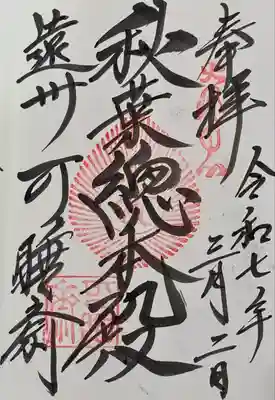 奉拝
令和七年
三月二日
秋葉總本殿
遠州 可睡斎